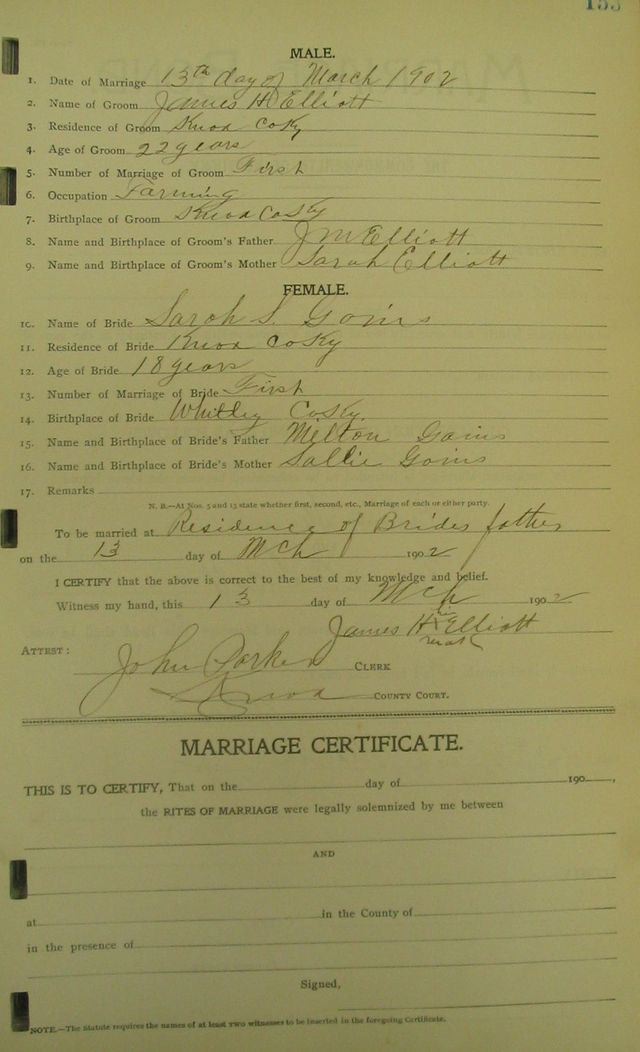 153
MALE.
1. Date of Marriage 13th day of March 1902
2. Name of Groom James H Elliott
3. Residence of Groom Knox Co Ky
4. Age of Groom 22 years
5. Number of Marriage of Groom First
6. Occupation Farming
7. Birthplace of Groom Knox Co Ky
8. Name and Birthplace of Groom's Father J M Elliott
9. Name and Birthplace of Groom's Mother Sarah Elliott
FEMALE.
10. Name of Bride Sarah S. Goins
11. Residence of Bride Knox Co Ky
12. Age of Bride 18 years
13. Number of Marriage of Bride First
14. Birthplace of Bride Whitley Co Ky.
15. Name and Birthplace of Bride's Father Melton Goins
16. Name and Birthplace of Bride's Mother Sallie Goins
17. Remarks
N. B.—At Nos. 5 and 13 state whether first, second, etc., Marriage of each or either party.
To be married at Residence of Brides father
on the 13 day of Mch 1902
I CERTIFY that the above is correct to the best of my knowledge and belief.
Witness my hand, this 13 day of Mch 1902
James H x Elliott
mark
ATTEST: John Parker CLERK
Knox COUNTY COURT.
MARRIAGE CERTIFICATE.
THIS IS TO CERTIFY, That on the day of 190 ,
the RITES OF MARRIAGE were legally solemnized by me between
AND
at in the County of
in the presence of
Signed,
NOTE.—The Statute requires the names of at least two witnesses to be inserted in the foregoing Certificate.